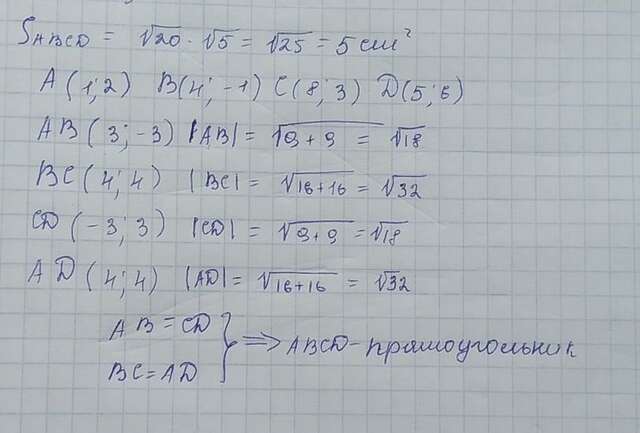 S_ABCD = √20 · √5 = √25 = 5 см²
A (1; 2) B(4; -1) C(8; 3) D(5; 6)
AB (3; -3) |AB| = √9+9 = √18
BC (4; 4) |BC| = √16+16 = √32
CD (-3; 3) |CD| = √9+9 = √18
AD (4; 4) |AD| = √16+16 = √32
AB = CD
BC = AD } ⇒ ABCD - прямоугольник